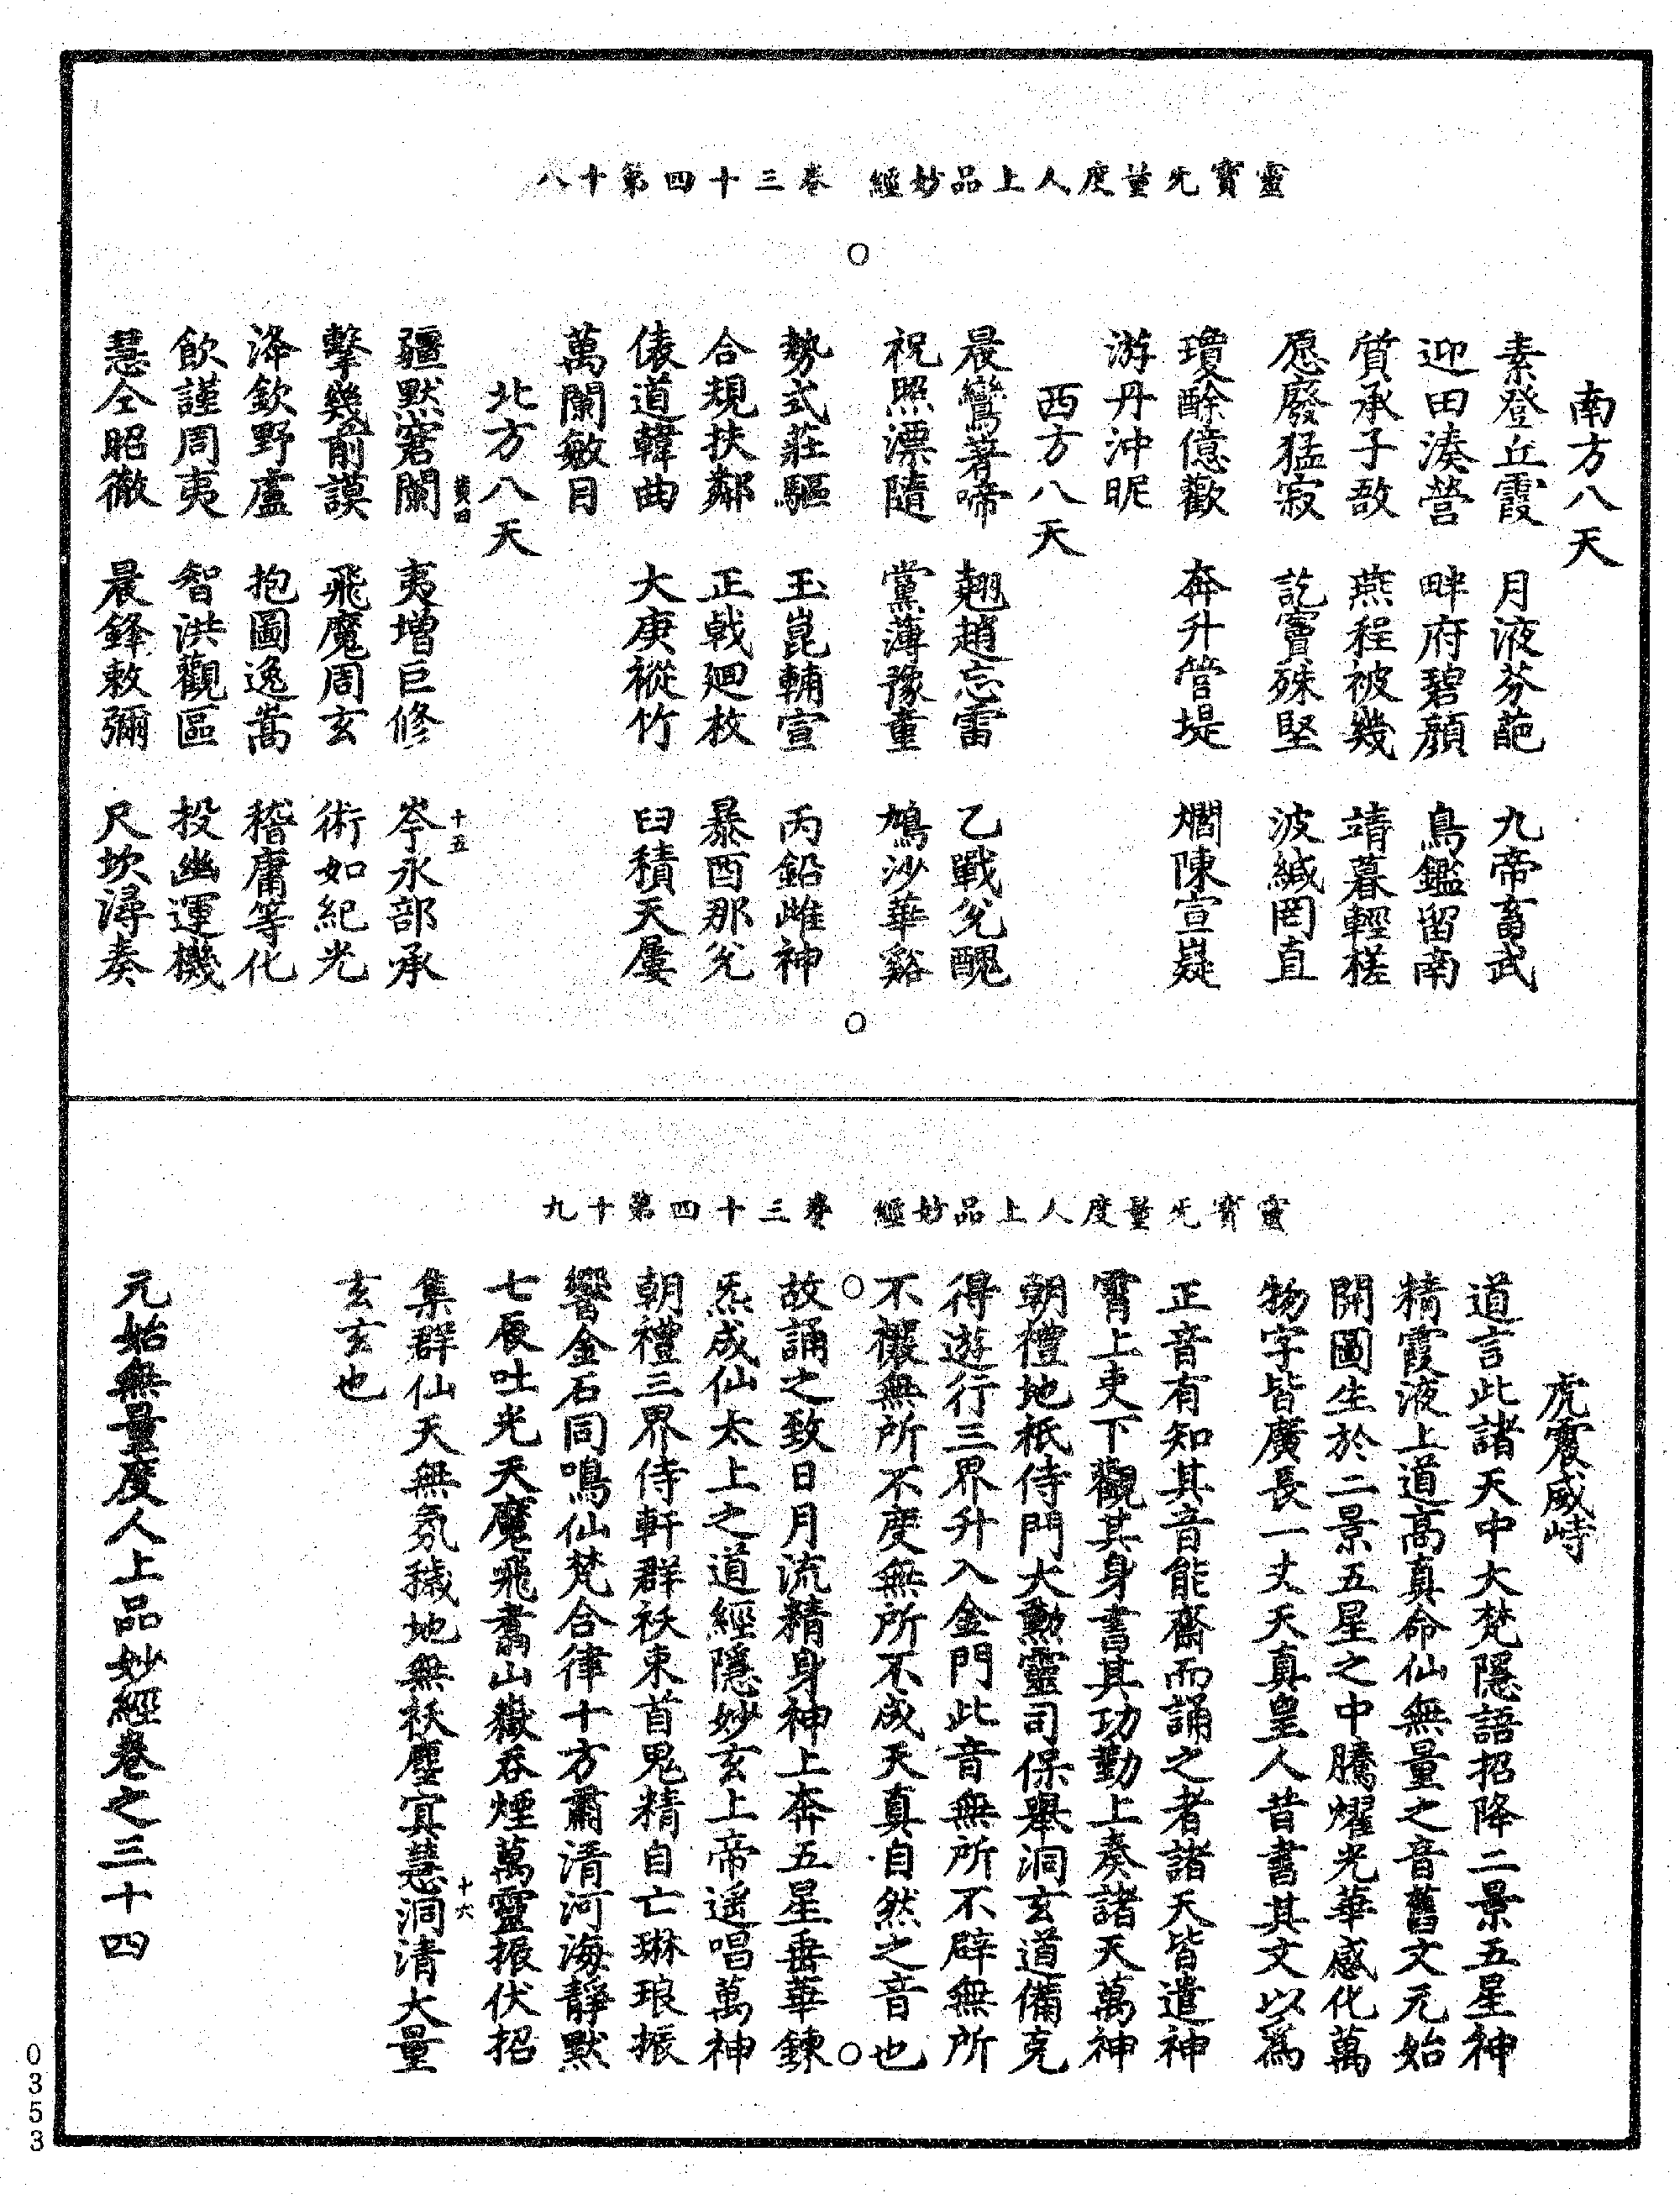 靈寶无量度人上品妙經 卷三十四第十八
南方八天
素登丘霞 月液芬葩 九帝畜武
迎田湊營 畔府碧顏 鳥鑑留南
質承子敔 燕程被幾 靖暮輕槎
愿廢猛寂 訖竇殊堅 波緘罔直
瓊酴億歡 奔升管堤 燗陳宣嶷
游丹沖昵
西方八天
晨鸞著啼 翹趙忘雷 乙戰兊醜
祝照漂隨 黨薄豫童 鳩沙華谿
勢式莊驅 玉崑輔宣 丙鉛雌神
合規扶鄰 正戟廻枚 暴酉那兊
俵道韓曲 大庚樅竹 臼積天屢
萬闌敏目
北方八天
十五
疆默窘闌 夷增巨修 岑永部承
擊幾前謨 飛魔周玄 術如紀光
洚欽野盧 抱圖逸嵩 稽庸等化
飲謹周夷 智洪觀區 投幽運機
慧仝昭徹 晨鋒敕彌 尺坎潯奏
靈寶无量度人上品妙經 卷三十四第十九
虎震威峙
道言此諸天中大梵隱語招降二景五星神
精霞液上道高真命仙無量之音舊文元始
開圖生於二景五星之中騰燿光華感化萬
物字皆廣長一丈天真皇人昔書其文以爲
正音有知其音能齋而誦之者諸天皆遣神
霄上吏下觀其身書其功勤上奏諸天萬神
朝禮地祇侍門大勲靈司保舉洞玄道備克
得遊行三界升入金門此音無所不辟無所
不禳無所不度無所不成天真自然之音也
故誦之致日月流精身神上奔五星垂華鍊
炁成仙太上之道經隱妙玄上帝遥唱萬神
朝禮三界侍軒群袄束首鬼精自亡琳琅振
響金石同鳴仙梵合律十方肅清河海靜默
七辰吐光天魔飛翥山嶽吞煙萬靈振伏招
十六
集群仙天無氛穢地無袄塵冥慧洞清大量
玄玄也
元始無量度人上品妙經卷之三十四
0353